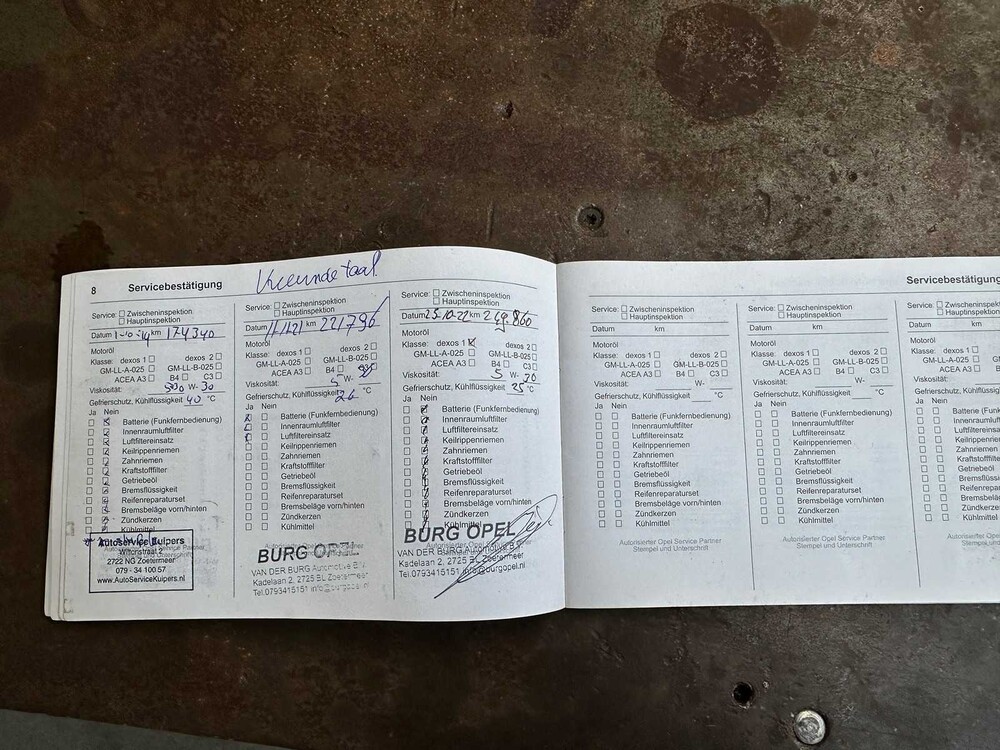 8 Servicebestätigung
Service: ☐ Zwischeninspektion
☐ Hauptinspektion
Datum km 174340
Motoröl
Klasse: dexos 1 ☐ dexos 2 ☐
GM-LL-A-025 ☐ GM-LL-B-025 ☐
ACEA A3 ☐ B4 ☐ C3 ☐
Viskosität: W- 30
Gefrierschutz, Kühlflüssigkeit 40 °C
Ja Nein
Batterie (Funkfernbedienung)
Innenraumluftfilter
Luftfiltereinsatz
Keilrippenriemen
Zahnriemen
Kraftstofffilter
Getriebeöl
Bremsflüssigkeit
Reifenreparaturset
Bremsbeläge vorn/hinten
Zündkerzen
Kühlmittel
AutoService Kuipers
Wittonstraat 2
2722 NG Zoetermeer
079 - 34 100 57
www.AutoServiceKuipers.nl
Service: ☐ Zwischeninspektion
☐ Hauptinspektion
Datum km 221796
Motoröl
Klasse: dexos 1 ☐ dexos 2 ☐
GM-LL-A-025 ☐ GM-LL-B-025 ☐
ACEA A3 ☐ B4 ☐ C3
Viskosität: 5 W-
Gefrierschutz, Kühlflüssigkeit 26 °C
Ja Nein
Batterie (Funkfernbedienung)
Innenraumluftfilter
Luftfiltereinsatz
Keilrippenriemen
Zahnriemen
Kraftstofffilter
Getriebeöl
Bremsflüssigkeit
Reifenreparaturset
Bremsbeläge vorn/hinten
Zündkerzen
Kühlmittel
BURG OPEL
VAN DER BURG Automotive B.V.
Kadelaan 2, 2725 BL Zoetermeer
Tel.0793415151 info@burgopel.nl
Service: ☐ Zwischeninspektion
☐ Hauptinspektion
Datum 25-10-22 km 249.860
Motoröl
Klasse: dexos 1 ☒ dexos 2 ☐
GM-LL-A-025 ☐ GM-LL-B-025 ☐
ACEA A3 ☐ B4 ☐ C3 ☐
Viskosität: 5 W- 20
Gefrierschutz, Kühlflüssigkeit 25 °C
Ja Nein
Batterie (Funkfernbedienung)
Innenraumluftfilter
Luftfiltereinsatz
Keilrippenriemen
Zahnriemen
Kraftstofffilter
Getriebeöl
Bremsflüssigkeit
Reifenreparaturset
Bremsbeläge vorn/hinten
Zündkerzen
Kühlmittel
BURG OPEL
VAN DER BURG Automotive B.V.
Kadelaan 2, 2725 BL Zoetermeer
Tel.0793415151 info@burgopel.nl
Servicebestätig
Service: ☐ Zwischeninspektion
☐ Hauptinspektion
Datum km
Motoröl
Klasse: dexos 1 ☐ dexos 2 ☐
GM-LL-A-025 ☐ GM-LL-B-025 ☐
ACEA A3 ☐ B4 ☐ C3 ☐
Viskosität: W-
Gefrierschutz, Kühlflüssigkeit °C
Ja Nein
Batterie (Funkfernbedienung)
Innenraumluftfilter
Luftfiltereinsatz
Keilrippenriemen
Zahnriemen
Kraftstofffilter
Getriebeöl
Bremsflüssigkeit
Reifenreparaturset
Bremsbeläge vorn/hinten
Zündkerzen
Kühlmittel
Autorisierter Opel Service Partner
Stempel und Unterschrift
Service: ☐ Zwischeninspektion
☐ Hauptinspektion
Datum km
Motoröl
Klasse: dexos 1 ☐ dexos 2 ☐
GM-LL-A-025 ☐ GM-LL-B-025 ☐
ACEA A3 ☐ B4 ☐ C3 ☐
Viskosität: W-
Gefrierschutz, Kühlflüssigkeit °C
Ja Nein
Batterie (Funkfernbedienung)
Innenraumluftfilter
Luftfiltereinsatz
Keilrippenriemen
Zahnriemen
Kraftstofffilter
Getriebeöl
Bremsflüssigkeit
Reifenreparaturset
Bremsbeläge vorn/hinten
Zündkerzen
Kühlmittel
Autorisierter Opel Service Partner
Stempel und Unterschrift
Service: ☐ Zwischenins
☐ Hauptinspe
Datum km
Motoröl
Klasse: dexos 1 ☐
GM-LL-A-025 ☐
ACEA A3 ☐
Viskosität:
Gefrierschutz, Kühlflüs
Ja Nein
Batterie (Fu
Innenraumlu
Luftfilterein
Keilrippenri
Zahnriemen
Kraftstofffil
Getriebeöl
Bremsflüss
Reifenrepa
Bremsbelä
Zündkerzen
Kühlmittel
Autorisierter Ope
Stempel und